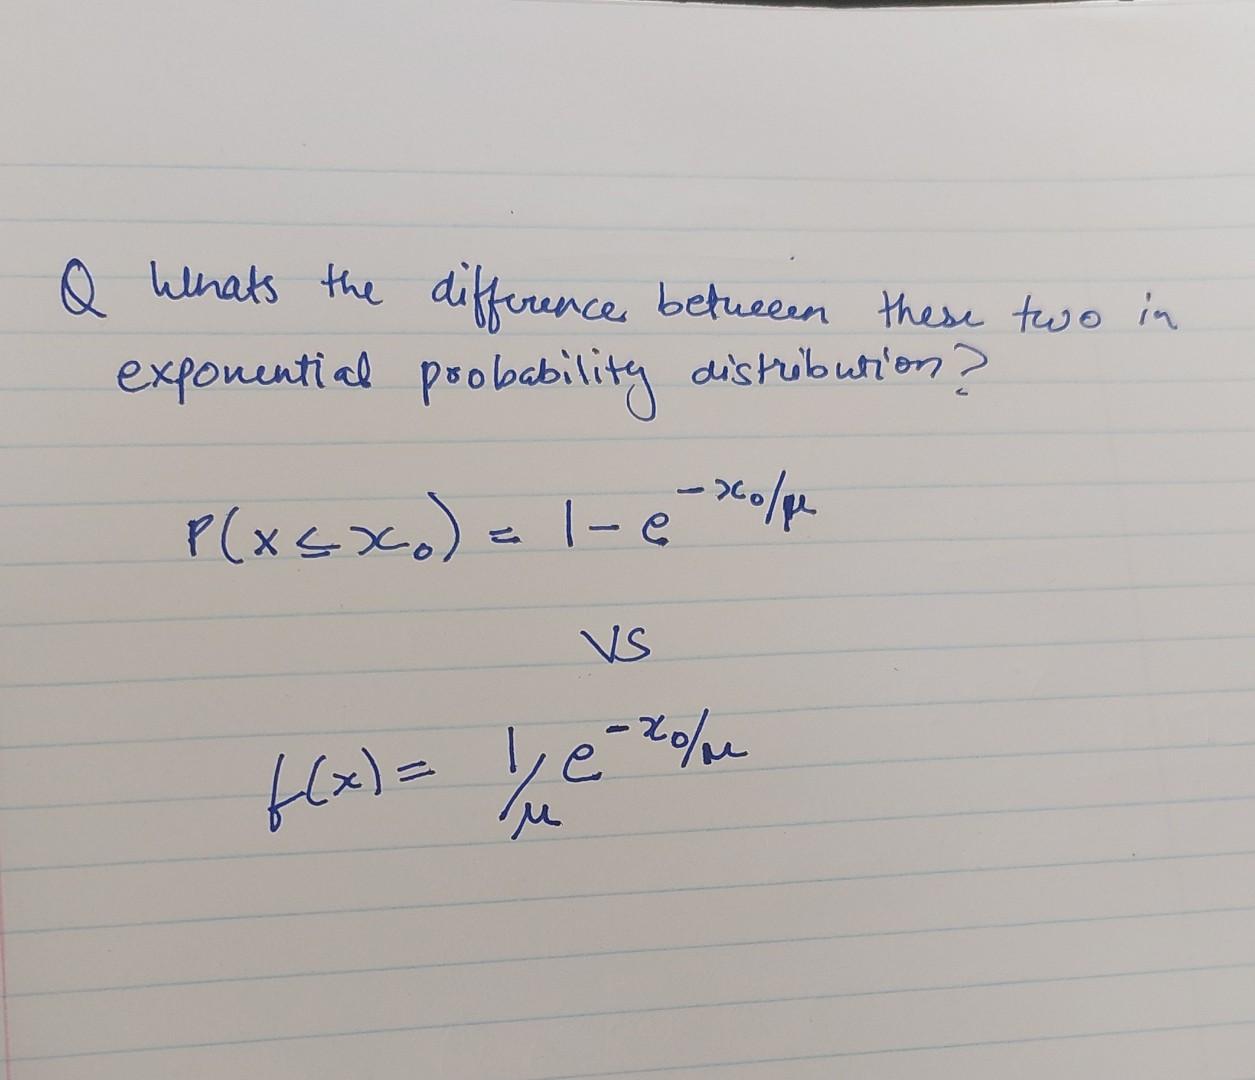 Q Whats the difference between these two in
exponential probability distribution?
P(x ≤ x₀) = 1 - e^{-x₀/μ}
VS
f(x) = 1/μ e^{-x₀/μ}